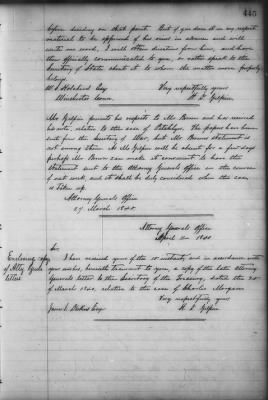 445
before deciding on that point. But if you deem it in any respect
material to be apprised of his views in advance and will
write me word, I will obtain directions from him, and have
them officially communicated to you, or rather speak to the
Secretary of State about it to whom the matter more properly
belongs.
Very respectfully yours
W. S. Holabird Esq H. D. Gilpin
Winchester Conn.
Mr. Gilpin presents his respects to Mr Brown and has received
his note, relative to the case of Petalesharo. The papers have been
sent from the Secretary of War, but Mr Browns Statement is
not among them. As Mr Gilpin will be absent for a few days
perhaps Mr Brown can make it convenient to have the
Statement sent to the Attorney Generals Office in the course
of next week, and it shall be duly considered when the case
is taken up.
Attorney Generals Office
27 March 1840.
Attorney Generals Office
April 2n 1840
Sir,
Enclosing copy
of Atty Genls
letter
I have received yours of the 1st instant, and in accordance with
your wishes, herewith transmit to you, a copy of the late Attorney
Generals letter to the Secretary of the Treasury, dated the
of March 1840, relative to the case of Charles Morgan
Very respectfully yours
James Esq. H. D. Gilpin